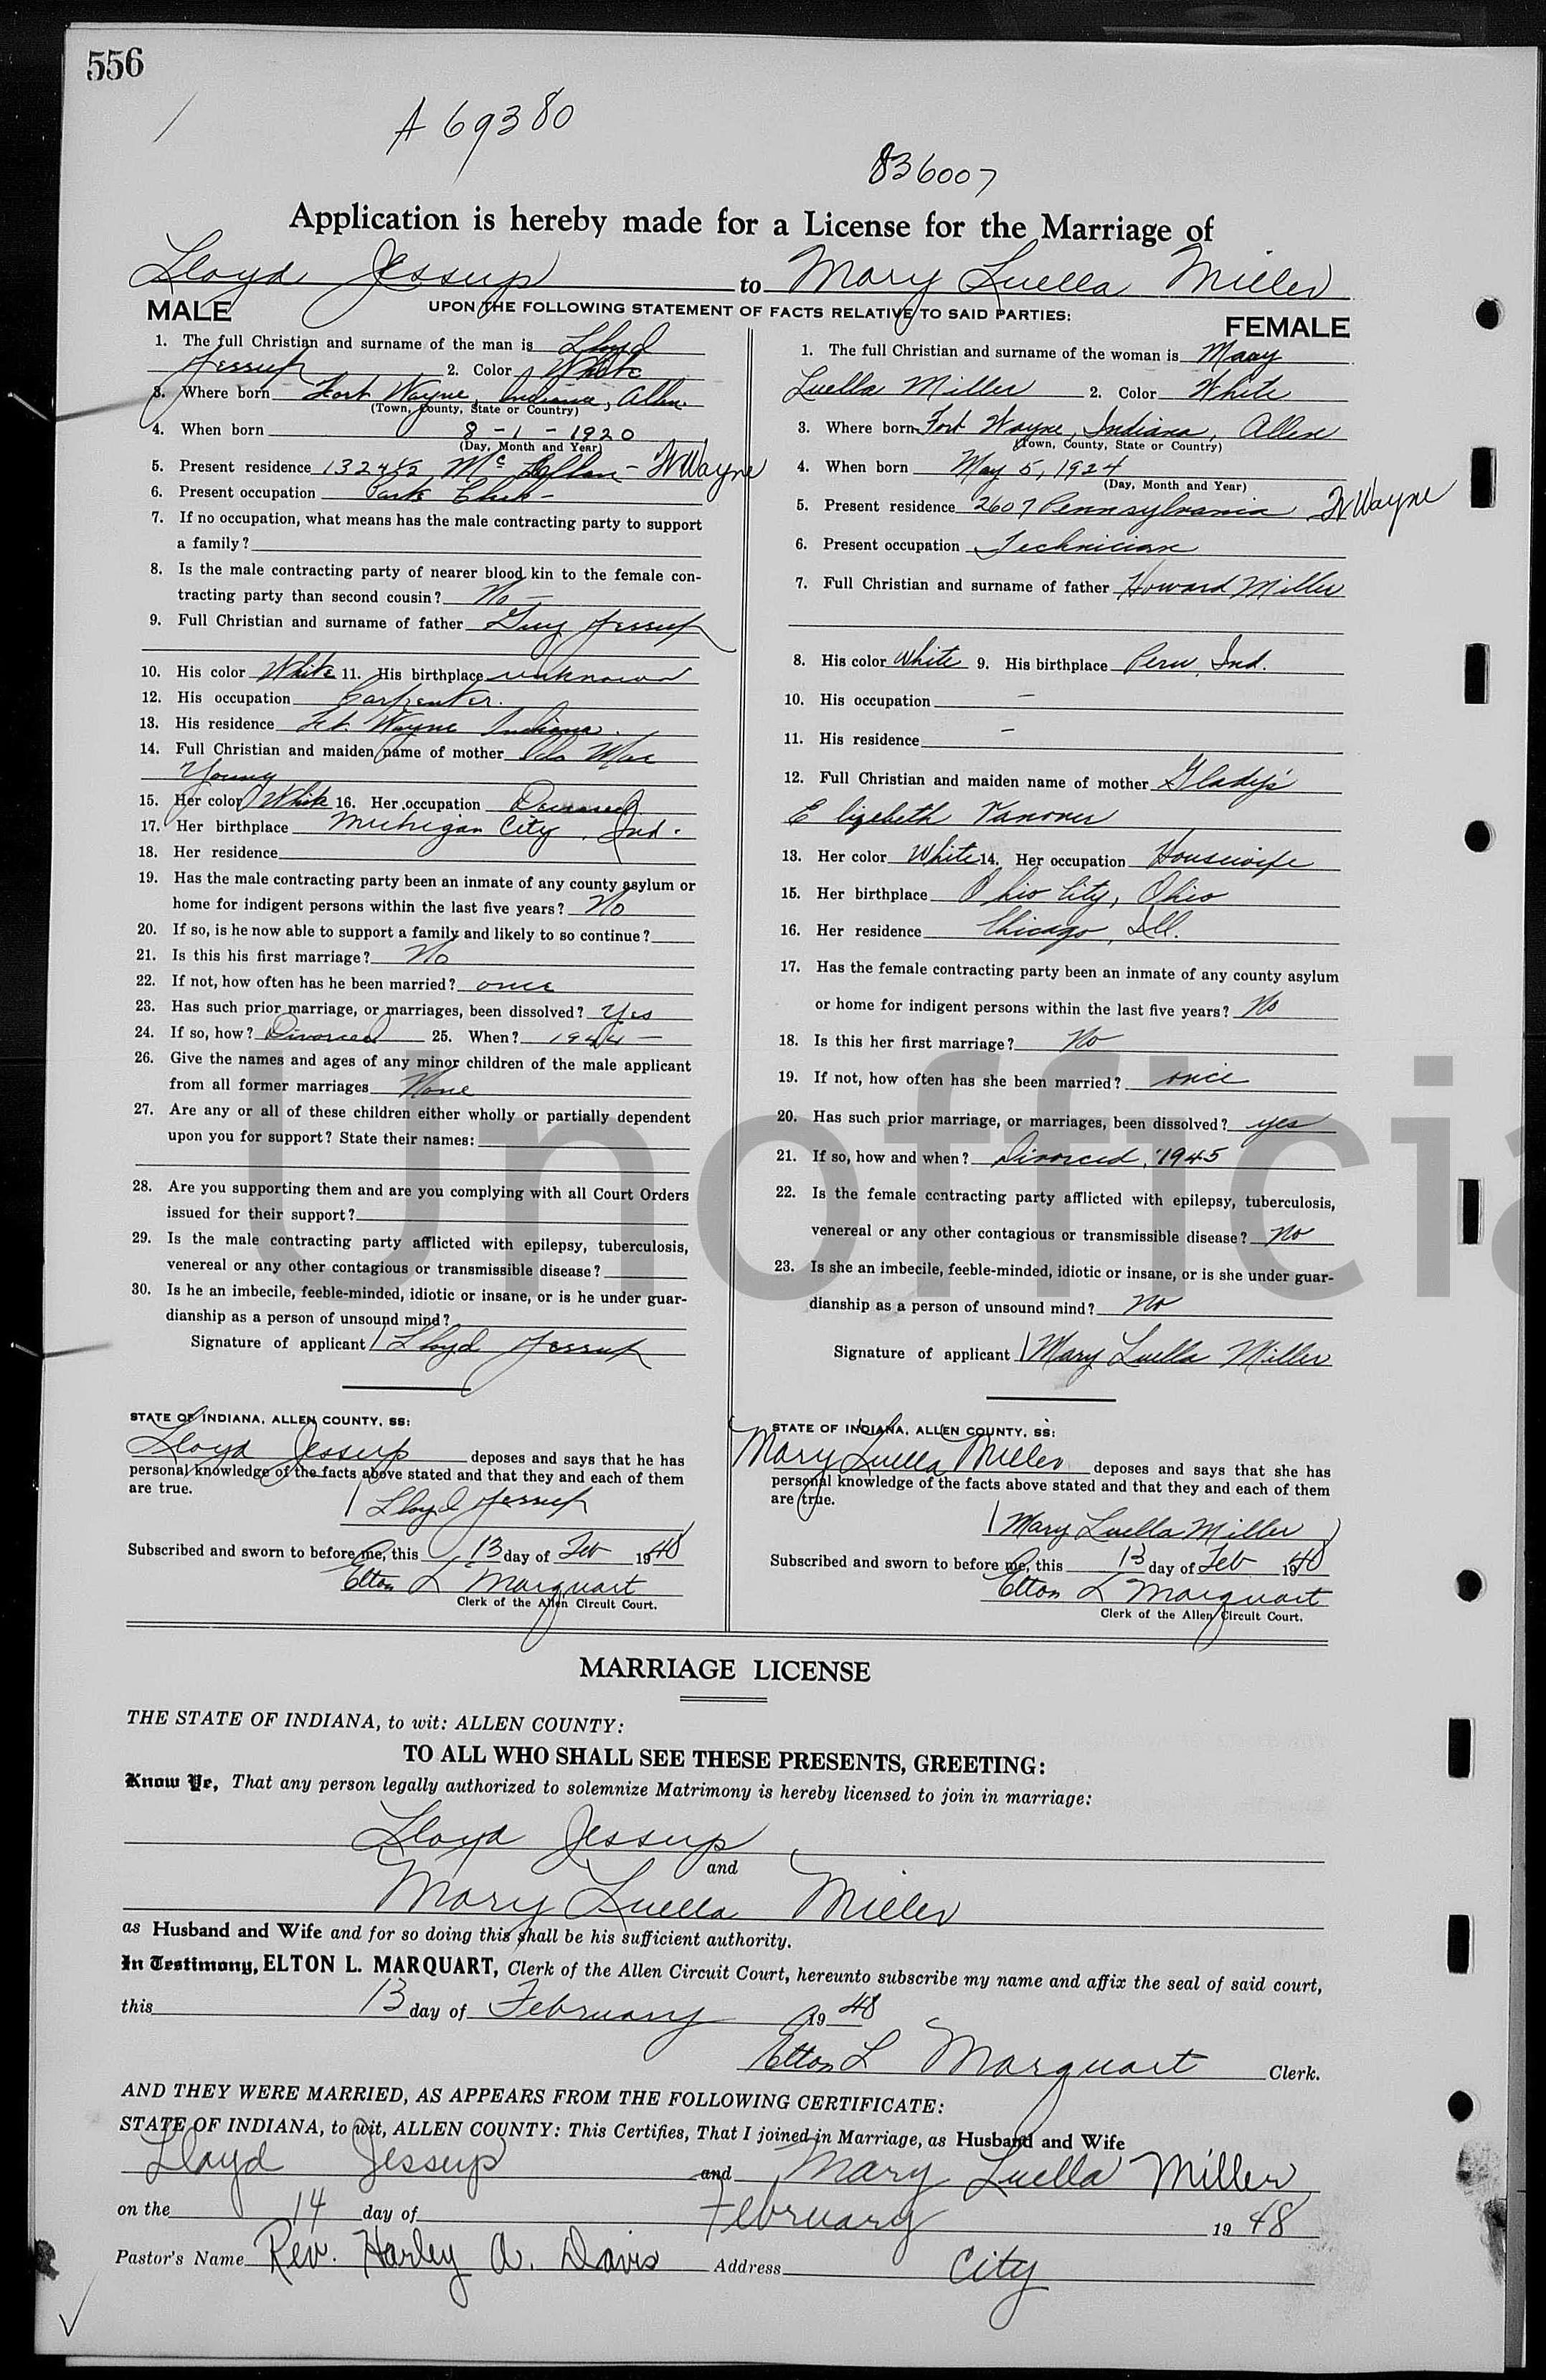 556
A 69380
836007
Application is hereby made for a License for the Marriage of
Lloyd Jessup to Mary Luella Miller
UPON THE FOLLOWING STATEMENT OF FACTS RELATIVE TO SAID PARTIES:
MALE
1. The full Christian and surname of the man is Lloyd
Jessup 2. Color White
3. Where born Fort Wayne, Indiana, Allen
(Town, County, State or Country)
4. When born 8-1-1920
(Day, Month and Year)
5. Present residence 1324½ Mc - Ft Wayne
6. Present occupation Parts Clerk -
7. If no occupation, what means has the male contracting party to support
a family?
8. Is the male contracting party of nearer blood kin to the female con-
tracting party than second cousin? No -
9. Full Christian and surname of father Guy Jessup
10. His color White 11. His birthplace unknown
12. His occupation Carpenter.
13. His residence Ft. Wayne Indiana.
14. Full Christian and maiden name of mother Ida Mae
Young
15. Her color White 16. Her occupation Deceased
17. Her birthplace Michigan City, Ind.
18. Her residence
19. Has the male contracting party been an inmate of any county asylum or
home for indigent persons within the last five years? No
20. If so, is he now able to support a family and likely to so continue?
21. Is this his first marriage? No
22. If not, how often has he been married? once
23. Has such prior marriage, or marriages, been dissolved? Yes
24. If so, how? Divorced 25. When? 1944 -
26. Give the names and ages of any minor children of the male applicant
from all former marriages None
27. Are any or all of these children either wholly or partially dependent
upon you for support? State their names:
28. Are you supporting them and are you complying with all Court Orders
issued for their support?
29. Is the male contracting party afflicted with epilepsy, tuberculosis,
venereal or any other contagious or transmissible disease?
30. Is he an imbecile, feeble-minded, idiotic or insane, or is he under guar-
dianship as a person of unsound mind?
Signature of applicant Lloyd Jessup
STATE OF INDIANA, ALLEN COUNTY, SS:
Lloyd Jessup deposes and says that he has
personal knowledge of the facts above stated and that they and each of them
are true.
Lloyd Jessup
Subscribed and sworn to before me, this 13 day of Feb 1948
Elton L Marquart
Clerk of the Allen Circuit Court.
FEMALE
1. The full Christian and surname of the woman is Mary
Luella Miller 2. Color White
3. Where born Fort Wayne, Indiana, Allen
(Town, County, State or Country)
4. When born May 5, 1924
(Day, Month and Year)
5. Present residence 2607 Pennsylvania Ft Wayne
6. Present occupation Technician
7. Full Christian and surname of father Howard Miller
8. His color White 9. His birthplace Peru, Ind.
10. His occupation -
11. His residence -
12. Full Christian and maiden name of mother Gladys
Elizebeth Vanover
13. Her color White 14. Her occupation Housewife
15. Her birthplace Ohio City, Ohio
16. Her residence Chicago, Ill.
17. Has the female contracting party been an inmate of any county asylum
or home for indigent persons within the last five years? No
18. Is this her first marriage? No
19. If not, how often has she been married? once
20. Has such prior marriage, or marriages, been dissolved? yes
21. If so, how and when? Divorced, 1945
22. Is the female contracting party afflicted with epilepsy, tuberculosis,
venereal or any other contagious or transmissible disease? No
23. Is she an imbecile, feeble-minded, idiotic or insane, or is she under guar-
dianship as a person of unsound mind? No
Signature of applicant Mary Luella Miller
STATE OF INDIANA, ALLEN COUNTY, SS:
Mary Luella Miller deposes and says that she has
personal knowledge of the facts above stated and that they and each of them
are true.
Mary Luella Miller
Subscribed and sworn to before me, this 13 day of Feb 1948
Elton L Marquart
Clerk of the Allen Circuit Court.
Unofficia
MARRIAGE LICENSE
THE STATE OF INDIANA, to wit: ALLEN COUNTY:
TO ALL WHO SHALL SEE THESE PRESENTS, GREETING:
Know Ye, That any person legally authorized to solemnize Matrimony is hereby licensed to join in marriage:
Lloyd Jessup
and
Mary Luella Miller
as Husband and Wife and for so doing this shall be his sufficient authority.
In Testimony, ELTON L. MARQUART, Clerk of the Allen Circuit Court, hereunto subscribe my name and affix the seal of said court,
this 13 day of February 1948
Elton L Marquart Clerk.
AND THEY WERE MARRIED, AS APPEARS FROM THE FOLLOWING CERTIFICATE:
STATE OF INDIANA, to wit, ALLEN COUNTY: This Certifies, That I joined in Marriage, as Husband and Wife
Lloyd Jessup and Mary Luella Miller
on the 14 day of February 1948
Pastor's Name Rev. Harley A. Davis Address City